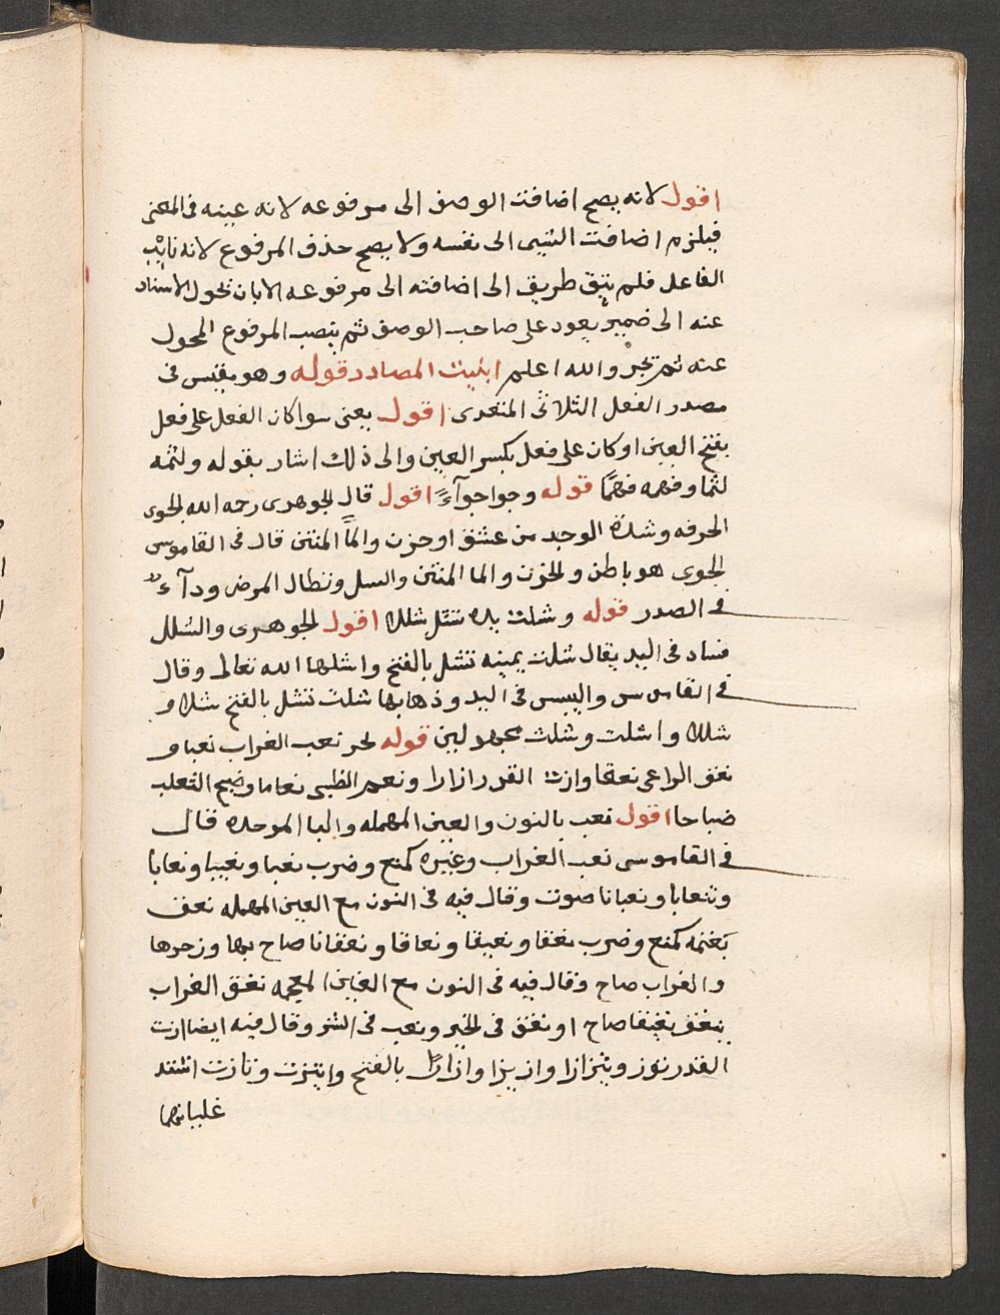 اقول لانه يصح اضافت الوصف الى مرفوعه لانه عينه فى المعنى
فيلزم اضافت الشيى الى نفسه ولا يصح حذف المرفوع لانه نايب
الفاعل فلم يبق طريق الى اضافته الى مرفوعه الا بان تحول الاسناد
عنه الى ضمير يعود على صاحب الوصف ثم ينصب المرفوع المحول
عنه ثم تجر والله اعلم ابنيت المصادر قوله وهو يقيس فى
مصدر الفعل الثلاثى المتعدى اقول يعنى سوا كان الفعل على فعل
بفتح العين او كان على فعل بكسر العين والى ذلك اشار بقوله ولثمه
لثما وفهمه فهمًا قوله وجوا جوآءً اقول قال الجوهرى رحه الله الجوى
الحرقه وشدة الوجد من عشق او حزن والمآ المنتن قال فى القاموس
الجوى هو باطن والحزن والما المنتن والسل وتطال المرض ودآء
فى الصدر قوله وشلت يده تشل شللا اقول الجوهرى والشلل
فساد فى اليد يقال شلت يمينه تشل بالفتح واشلها الله تعالى وقال
فى القاموس واليبس فى اليد وذهابها شلت تشل بالفتح شلا و
شللا واشلت وشلت مجهولين قوله نحو نعب الغراب نعبا و
نعق الراعى نعقا وازت القدر ازازا ونعم الظبى نعاما وضبح الثعلب
ضباحا اقول نعب بالنون والعين المهمله والبا الموحده قال
فى القاموسى نعب الغراب وغيره كمنع وضرب نعبا ونعيبا ونعابا
وتنعابا ونعبانا صوت وقال فيه فى النون مع العين المهمله نعق
بغنمه كمنع وضرب نعقا ونعيقا ونعاقا ونعقانا صاح بها وزجرها
والغراب صاح وقال فيه فى النون مع الغين المعجمه نغق الغراب
ينغق نغيقا صاح او نغق فى الخير ونعب فى الشر وقال فيه ايضا ازت
القدر توز وتيز ازا وازيزا وازازًا بالفتح وايتزت وتازت اشتد
غليانها